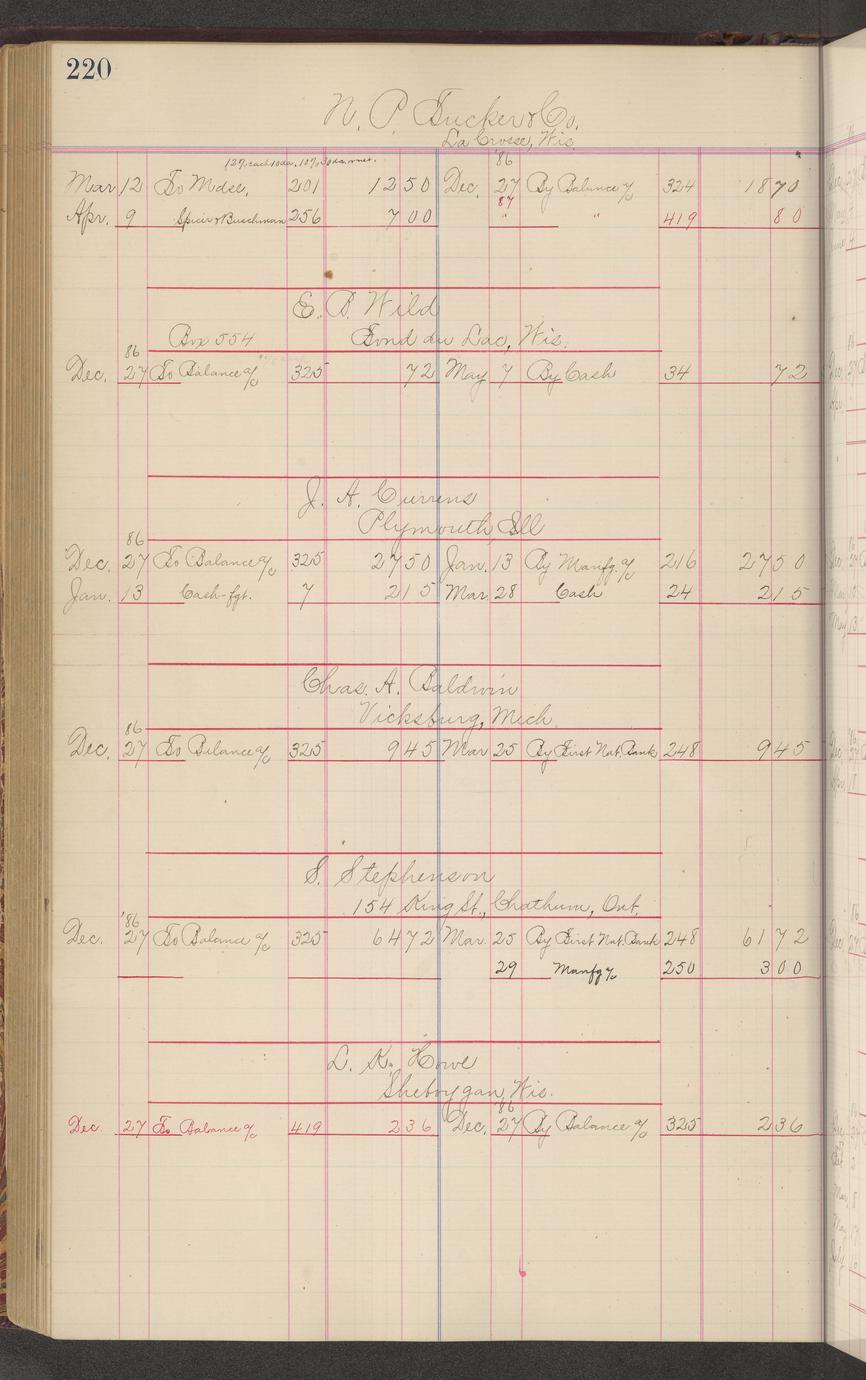 220
N. P. Tucker & Co.
La Crosse, Wis.
12% each 10 da. 10% 30 da. or net. '86
Mar 12 To Mdse, 201 12 50 Dec. 27 By Balance a/c 324 18 70
Apr. 9 Spicer & Buschman 256 7 00 87 " " 419 80
E. B. Wild
Box 554 Fond du Lac, Wis.
86
Dec. 27 To Balance a/c 325 72 May 7 By Cash 34 72
J. A. Currens
Plymouth Ill
86
Dec. 27 To Balance a/c 325 27 50 Jan. 13 By Manfg. a/c 216 27 50
Jan. 13 Cash-fgt. 7 2 15 Mar 28 Cash 24 2 15
Chas. A. Baldwin
Vicksburg, Mich.
86
Dec. 27 To Balance a/c 325 9 45 Mar 25 By First Nat. Bank 248 9 45
S. Stephenson
154 King St., Chathum, Ont.
'86
Dec. 27 To Balance a/c 325 64 72 Mar. 25 By First Nat. Bank 248 61 72
29 Manfg a/c 250 3 00
L. K. Howe
Sheboygan, Wis.
'86
Dec. 27 To Balance a/c 419 2 36 Dec. 27 By Balance a/c 325 2 36